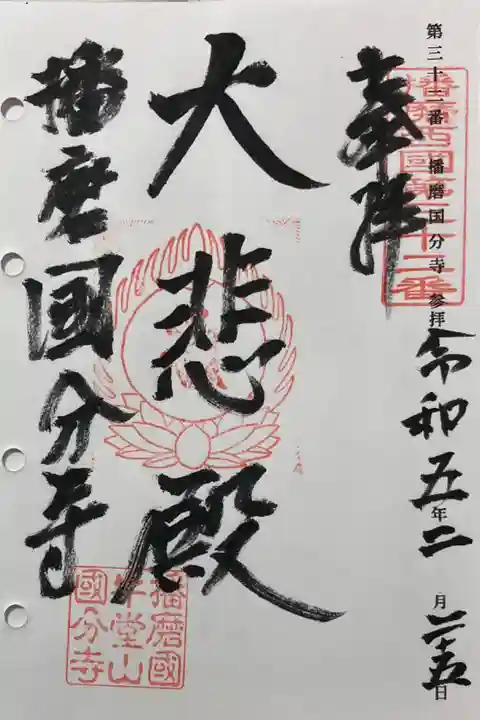 第三十二番 播磨国分寺 参拝 令和五年二月二十五日
播磨西國第三十二番
奉拝
大悲殿
播磨国分寺
播磨國
牛堂山
國分寺